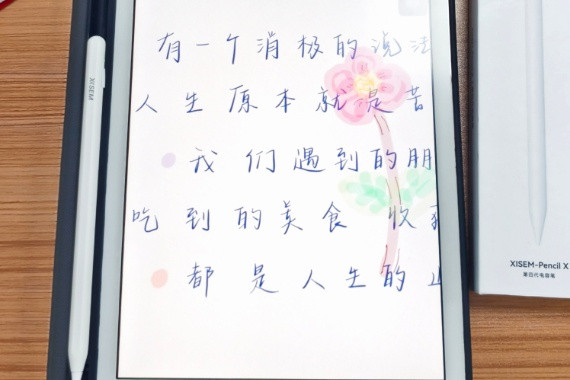 有一个消极的说法
人生原本就是苦
我们遇到的朋
吃到的美食 收
都是人生的
XISEM
XISEM-Pencil X